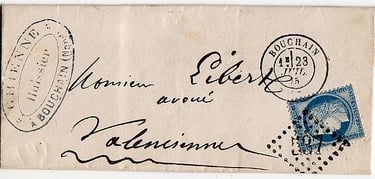 GHIENNE
Huissier
A BOUCHAIN (NORD)
BOUCHAIN
1E 23
JUIL.
5
Monsieur Libert
avoué
Valenciennes
537